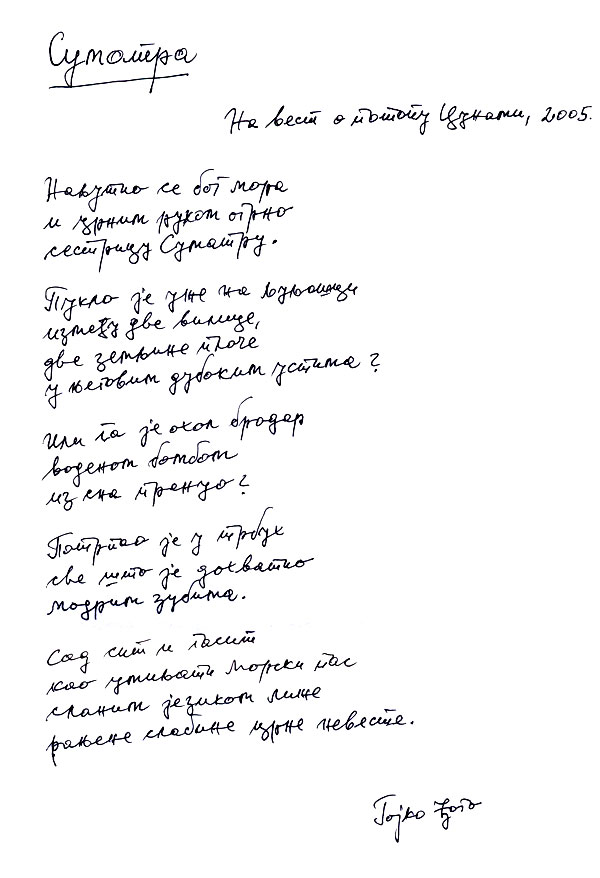 Суматра
На вест о потопу Цунами, 2005.
Накутио се бог мора
и црним руком огрно
сестрицу Суматру.
Пукло је уже на љуљашци
између две вилице,
две земљине плоче
у његовим дубоким устима?
Или га је охол бродар
воденом бомбом
из сна пренуо?
Потрпао је у трбух
све што је дохватио
модрим зубима.
Сад сит и гасит
као умиљати морски пас
сланим језиком лиже
рањене слабине црне невесте.
Гојко Ђого